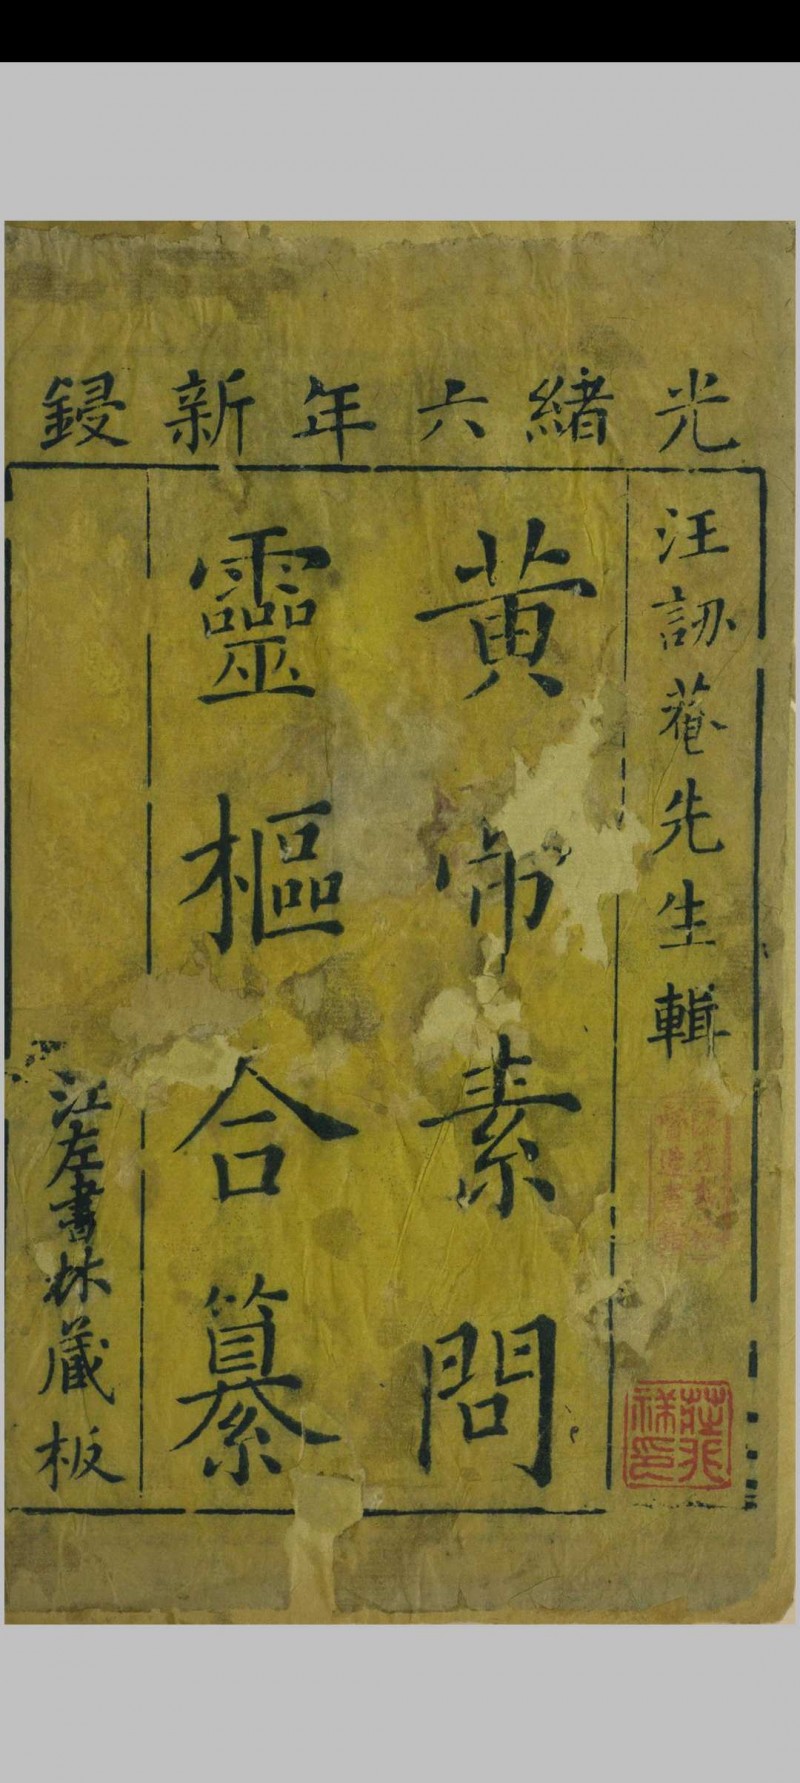 光緒六年新鋟
汪訒菴先生輯
黄帝素問
靈樞合纂
江左書林藏板
莊行
祥印